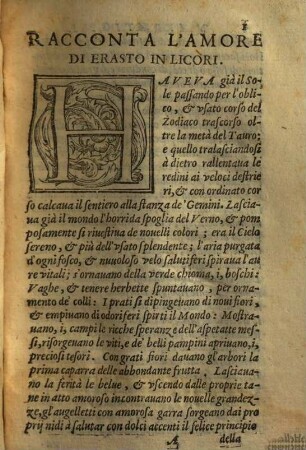 1
RACCONTA L'AMORE
DI ERASTO IN LICORI.
HAVEVA già il So-
le passando per l'obli-
co, & vsato corso del
Zodiaco trascorso ol-
tre la metà del Tauro;
e quello tralasciandosi
à dietro rallentaua le
redini ai veloci destrie
ri, & con ordinato cor
so calcaua il sentiero alla stanza de' Gemini. Lascia-
ua già il mondo l'horrida spoglia del Verno, & pom
posamente si riuestiua de nouelli colori; era il Cielo
sereno, & più dell'vsato splendente; l'aria purgata
d'ogni fosco, & nuuoloso velo salutiferi spiraua l'au
re vitali; s'ornauano della verde chioma, i, boschi:
Vaghe, & tenere herbette spuntauano, per orna-
mento de' colli: I prati si dipingeuano di noui fiori,
& empiuano di odoriferi spirti il Mondo: Mostra-
uano, i, campi le ricche speranze dell'aspettate mes-
si, risorgeuano le viti, e de' belli pampini apriuano, i,
preciosi tesori. Con grati fiori dauano gl'arbori la
prima caparra delle abbondante frutta. Lasciaua-
no la ferità le belue, & vscendo dalle proprie ta-
ne in atto amoroso incontrauano le nouelle grandez-
ze, gl'augelletti con amorosa garra sorgeano dai pro
prij nidi à salutar con dolci accenti il felice principio
A
della